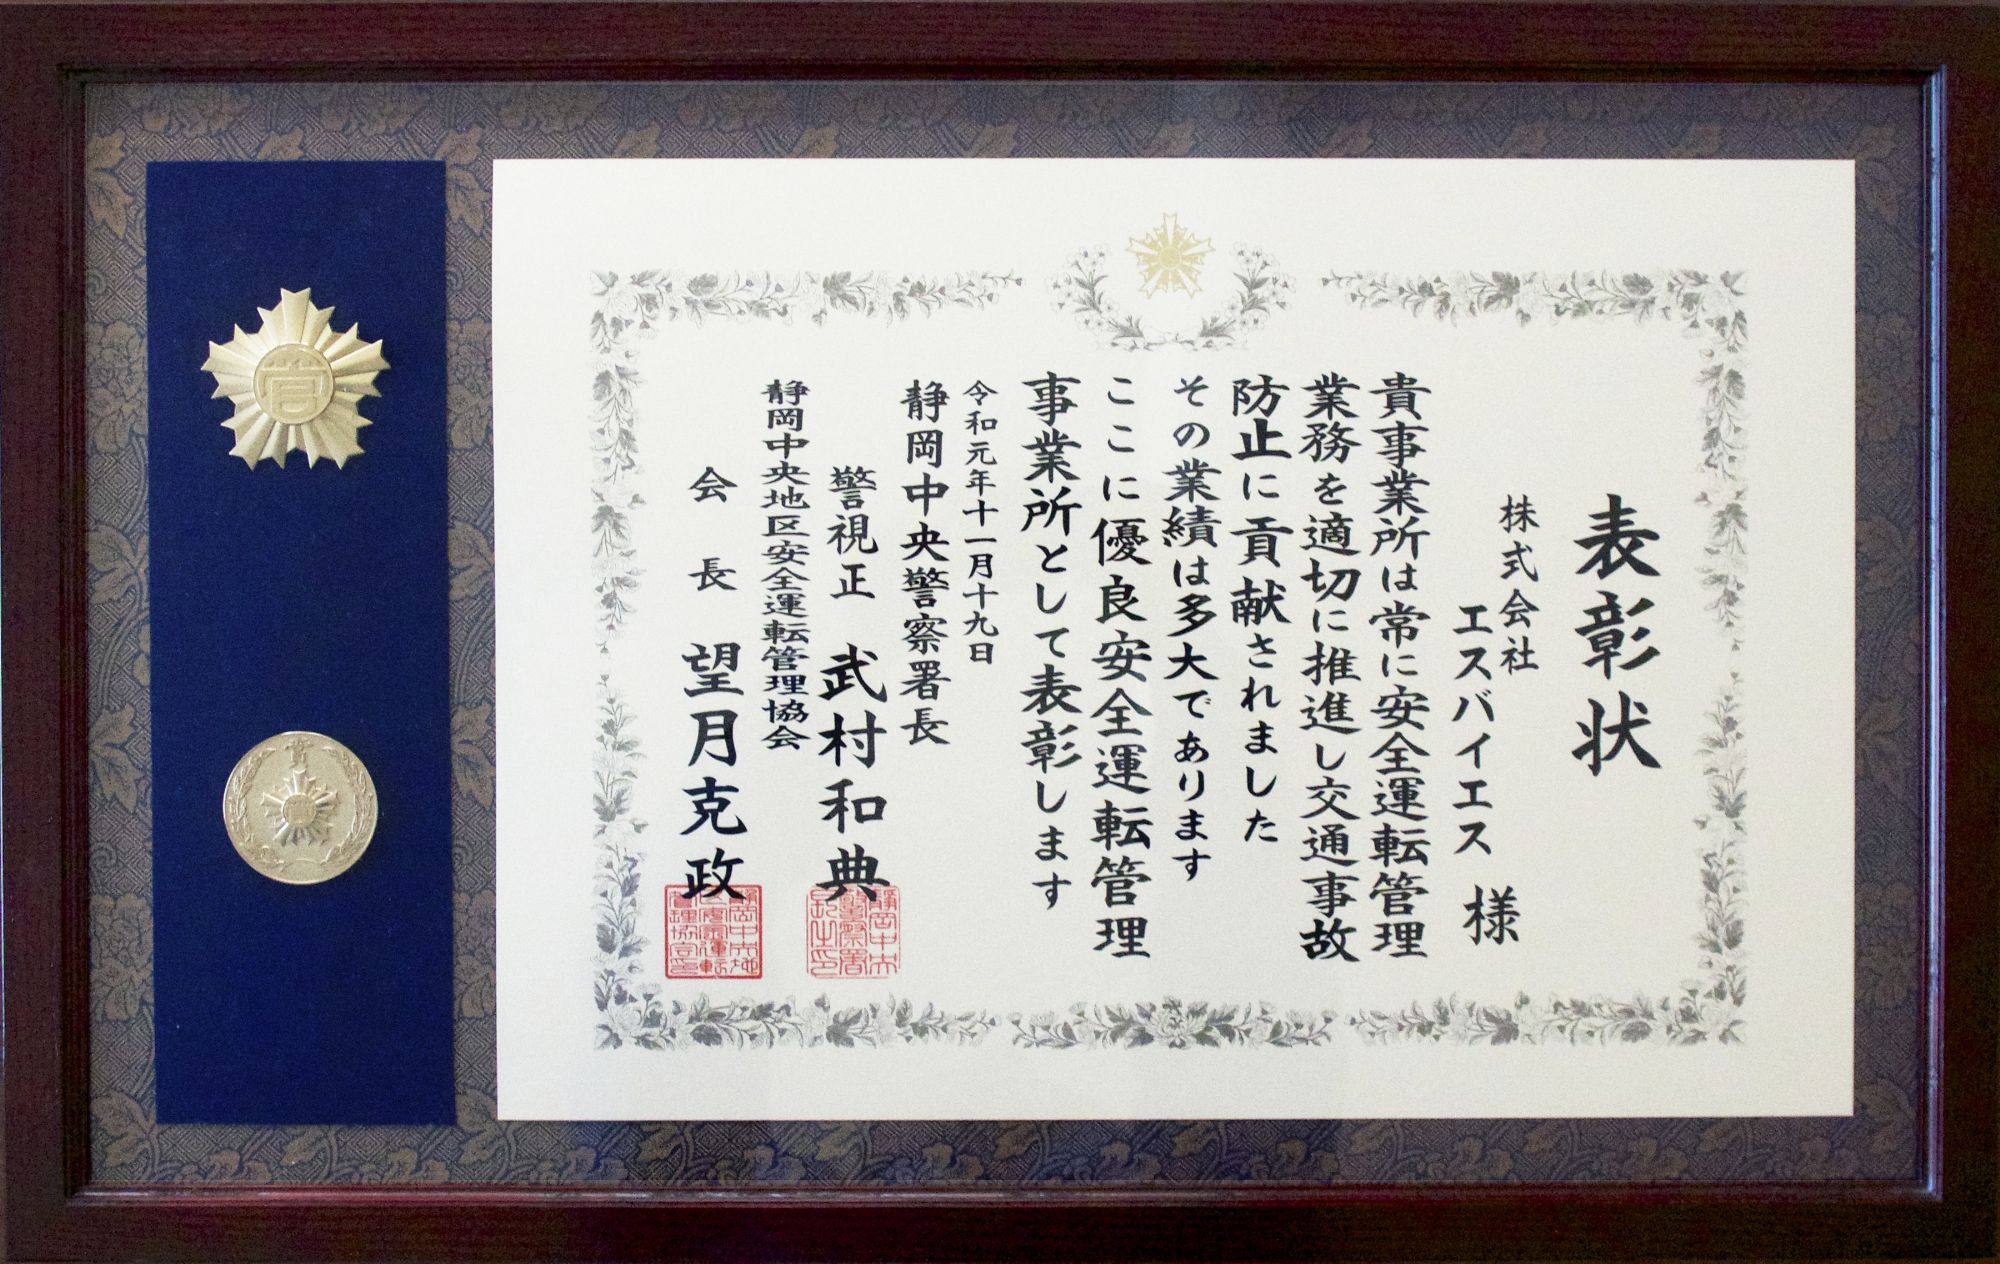 表彰状
株式会社
エスバイエス 様
貴事業所は常に安全運転管理
業務を適切に推進し交通事故
防止に貢献されました
その業績は多大であります
ここに優良安全運転管理
事業所として表彰します
令和元年十一月十九日
静岡中央警察署長
警視正 武村和典
静岡中央地区安全運転管理協会
会長 望月克政
管
賞